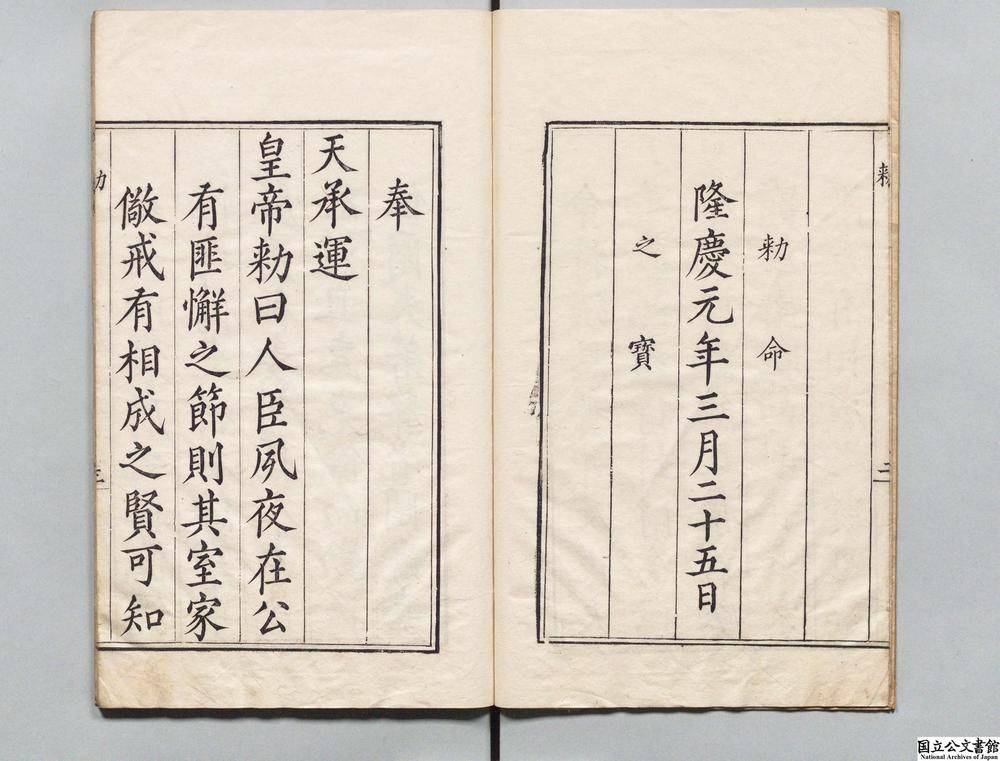 敕
二
敕命
隆慶元年三月二十五日
之寶
奉
天承運
皇帝敕曰人臣夙夜在公
有匪懈之節則其室家
儆戒有相成之賢可知
三
国立公文書館
National Archives of Japan